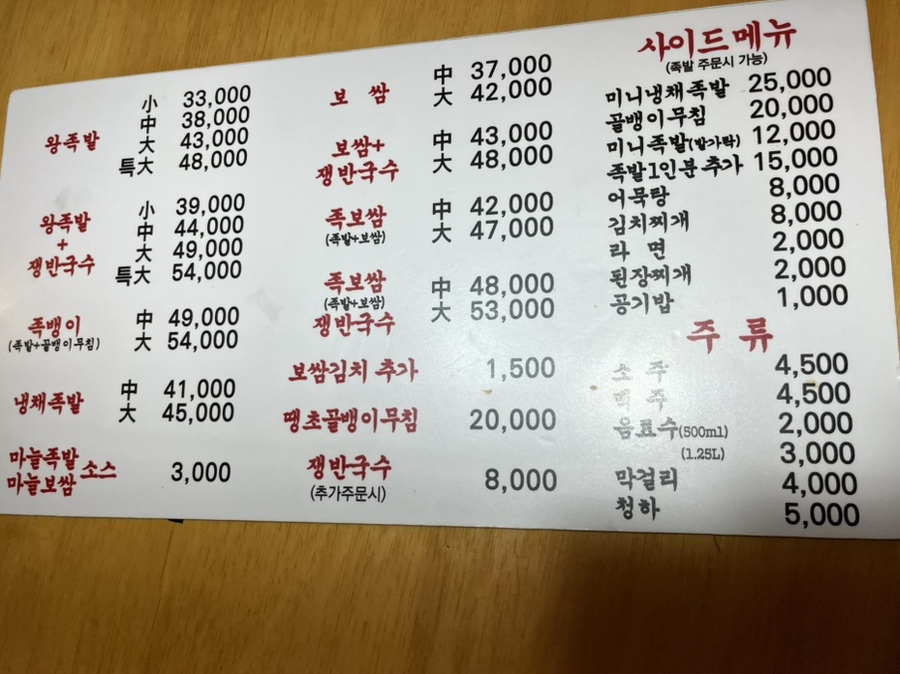 왕족발
小 33,000
中 38,000
大 43,000
특大 48,000
왕족발
+
쟁반국수
小 39,000
中 44,000
大 49,000
특大 54,000
족뱅이
(족발+골뱅이무침)
中 49,000
大 54,000
냉채족발
中 41,000
大 45,000
마늘족발
마늘보쌈 소스 3,000
보 쌈
中 37,000
大 42,000
보쌈+
쟁반국수
中 43,000
大 48,000
족보쌈
(족발+보쌈)
中 42,000
大 47,000
족보쌈
(족발+보쌈)
쟁반국수
中 48,000
大 53,000
보쌈김치 추가 1,500
땡초골뱅이무침 20,000
쟁반국수
(추가주문시) 8,000
사이드메뉴
(족발 주문시 가능)
미니냉채족발 25,000
골뱅이무침 20,000
미니족발(발가락) 12,000
족발1인분추가 15,000
어묵탕 8,000
김치찌개 8,000
라 면 2,000
된장찌개 2,000
공기밥 1,000
주 류
소 주 4,500
맥 주 4,500
음료수(500ml) 2,000
(1.25L) 3,000
막걸리 4,000
청하 5,000